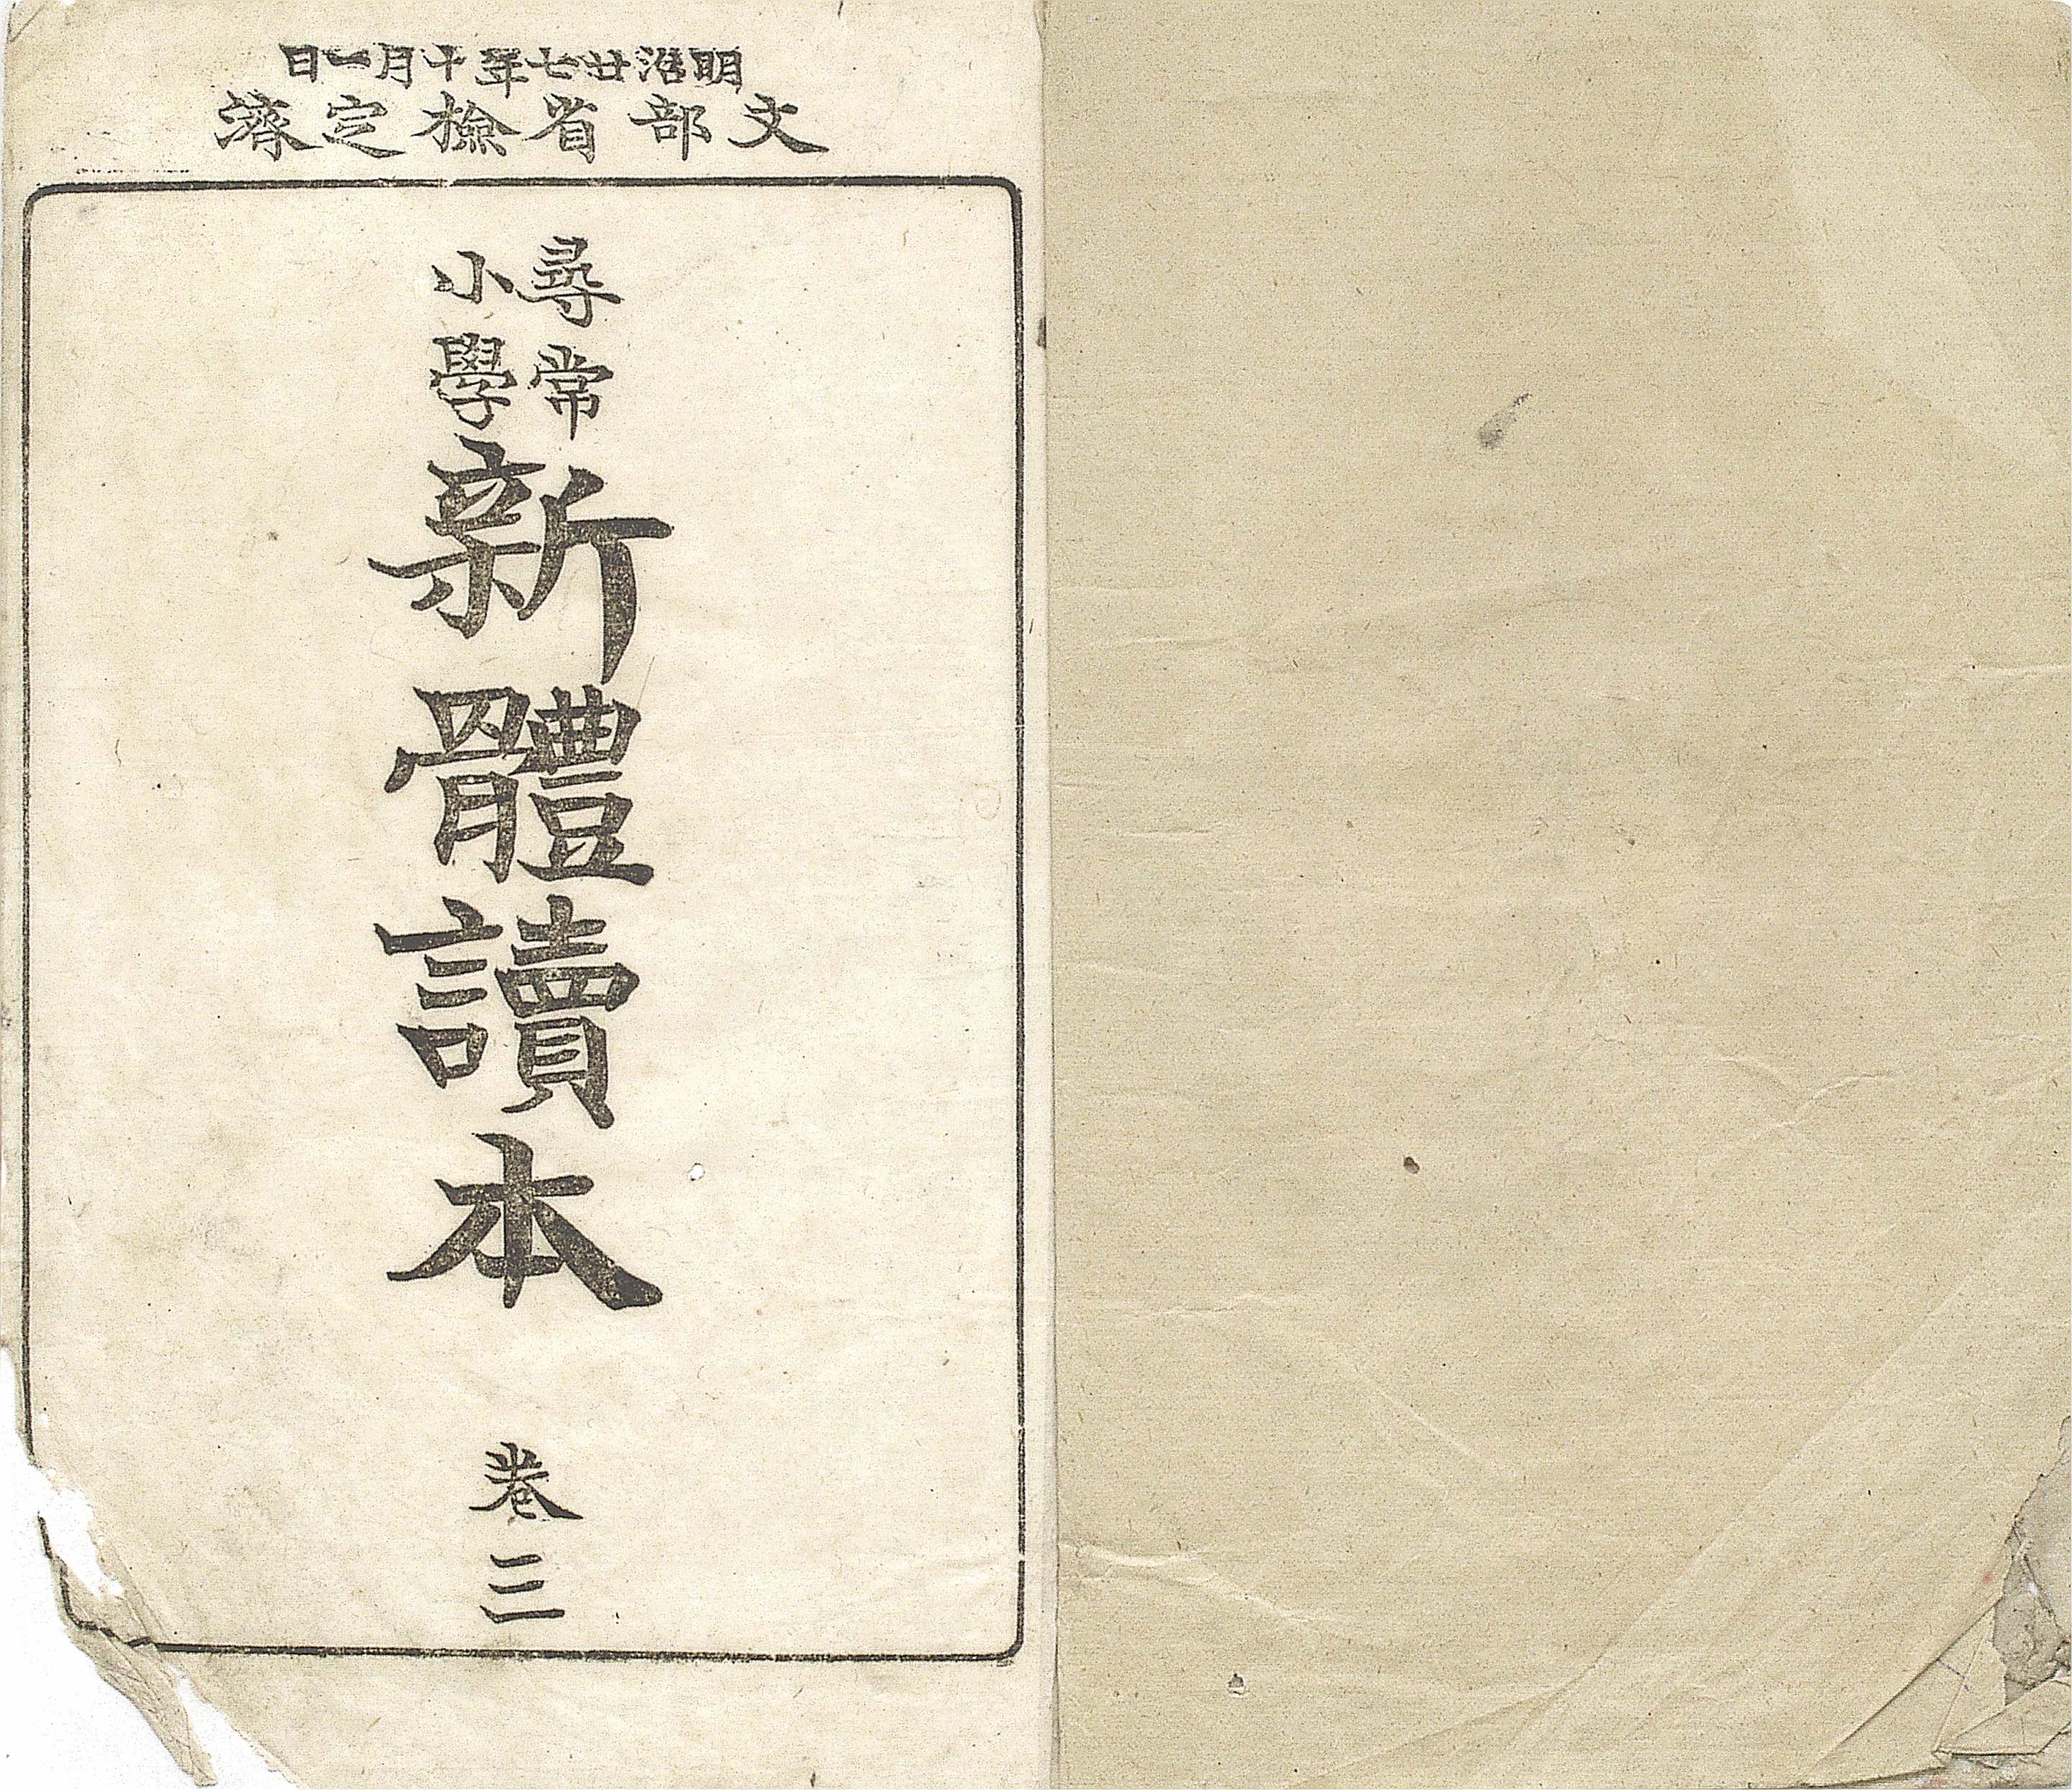 明治廿七年十月一日
文部省檢定濟
尋常
小學
新體讀本
卷三